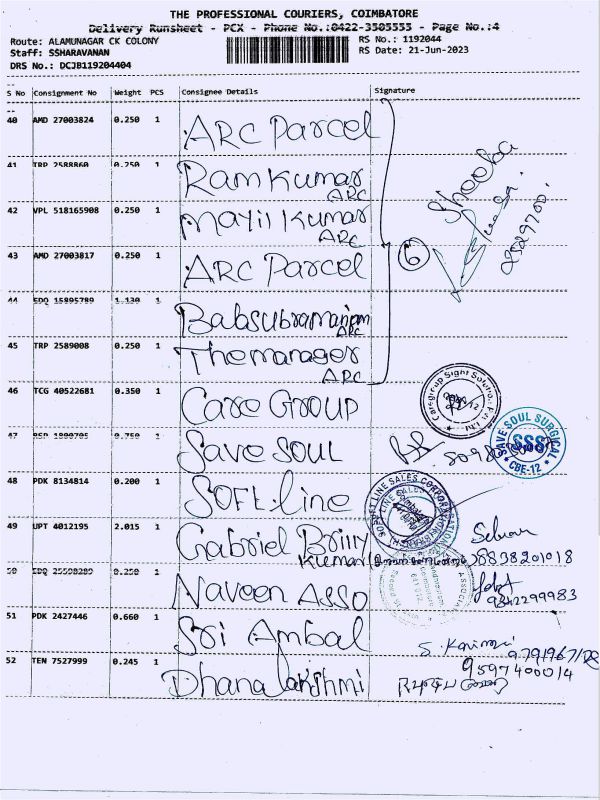 THE PROFESSIONAL COURIERS, COIMBATORE
Delivery Runsheet - PCX - Phone No.:0422-3505555 - Page No.:4
Route: ALAMUNAGAR CK COLONY RS No.: 1192044
Staff: SSHARAVANAN RS Date: 21-Jun-2023
DRS No.: DCJB119204404
S No Consignment No Weight PCS Consignee Details Signature
40 AMD 27003824 0.250 1 ARC Parcel
41 TRP 2588860 0.250 1 Ram Kumar
ARC
42 VPL 518165908 0.250 1 Mayil Kumar
ARC
43 AMD 27003817 0.250 1 ARC Parcel
Sheeba
6
44 EDQ 15895789 1.130 1 Babsubramaniam
ARC
45 TRP 2589008 0.250 1 The manager
ARC
46 TCG 40522681 0.350 1 Care Group
47 0.750 1 Save Soul
SAVE SOUL SURGICAL
SSS
CBE-12
48 PDK 8134814 0.200 1 Soft-line
49 UPT 4012195 2.015 1 Gabriel Briity
Kumar
9883820 1018
50 EDQ 0.250 1 Naveen Asso
9842299983
51 PDK 2427446 0.660 1 Sri Ambal
52 TEN 7527999 0.245 1 Dhanalakshmi
9597400014